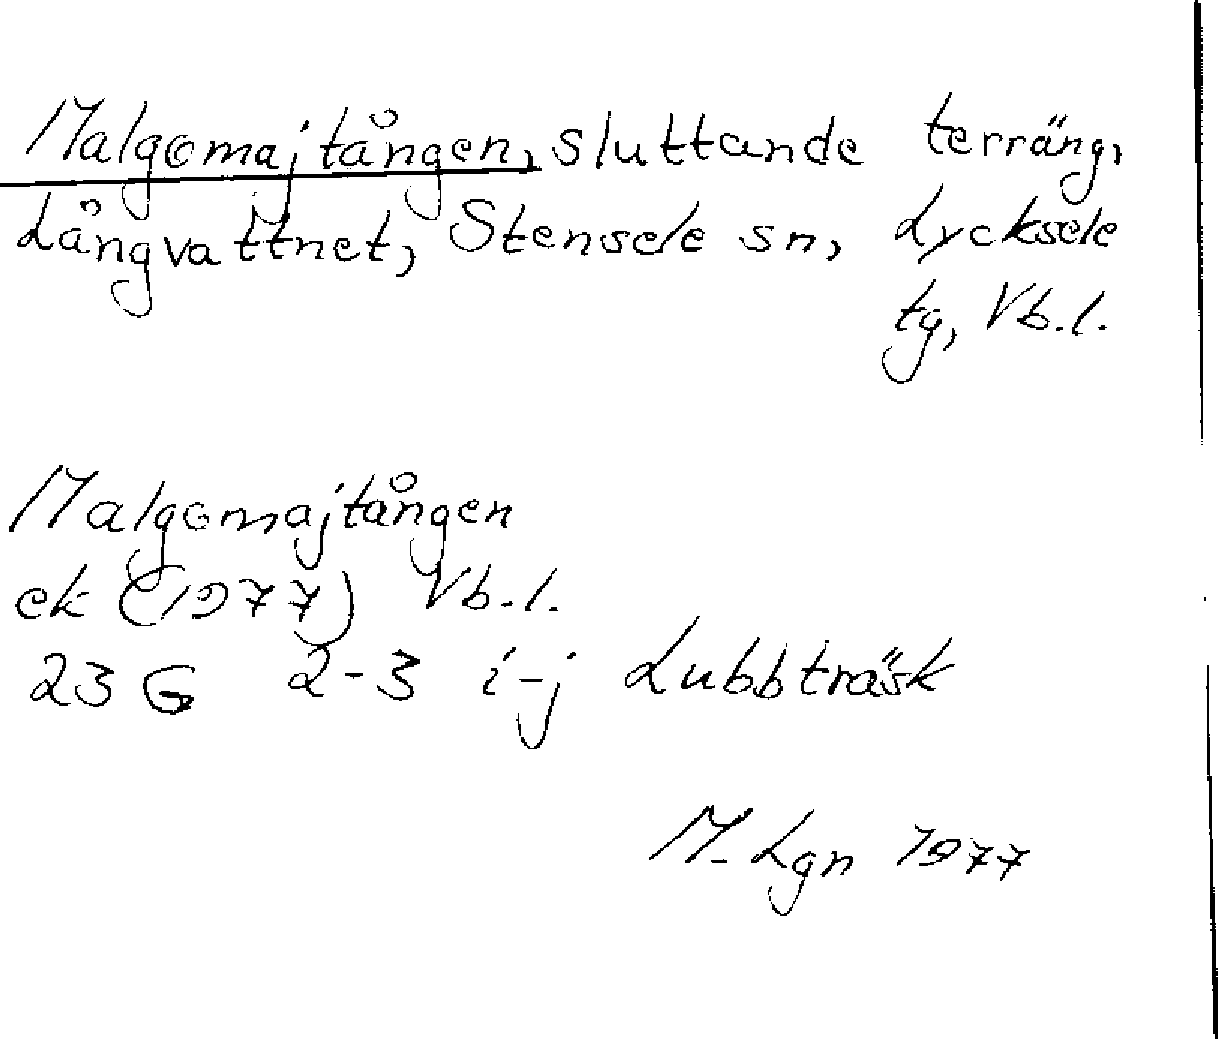 Malgomajtången, sluttande terräng,
Långvattnet, Stensele sn, Lycksele
tg, Vb.l.
Malgomajtången
ek (1977) Vb.l.
23 G 2-3 i-j Lubbträsk
M-Lgn 1977